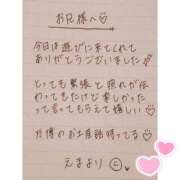 お兄様へ♡
今日は遊びに来てくれて
ありがとうございました!
とっても緊張と照れが伝
わってもたけど楽しかった
って言ってもらえて嬉しい♡
万博のお土産話待ってる
えまより